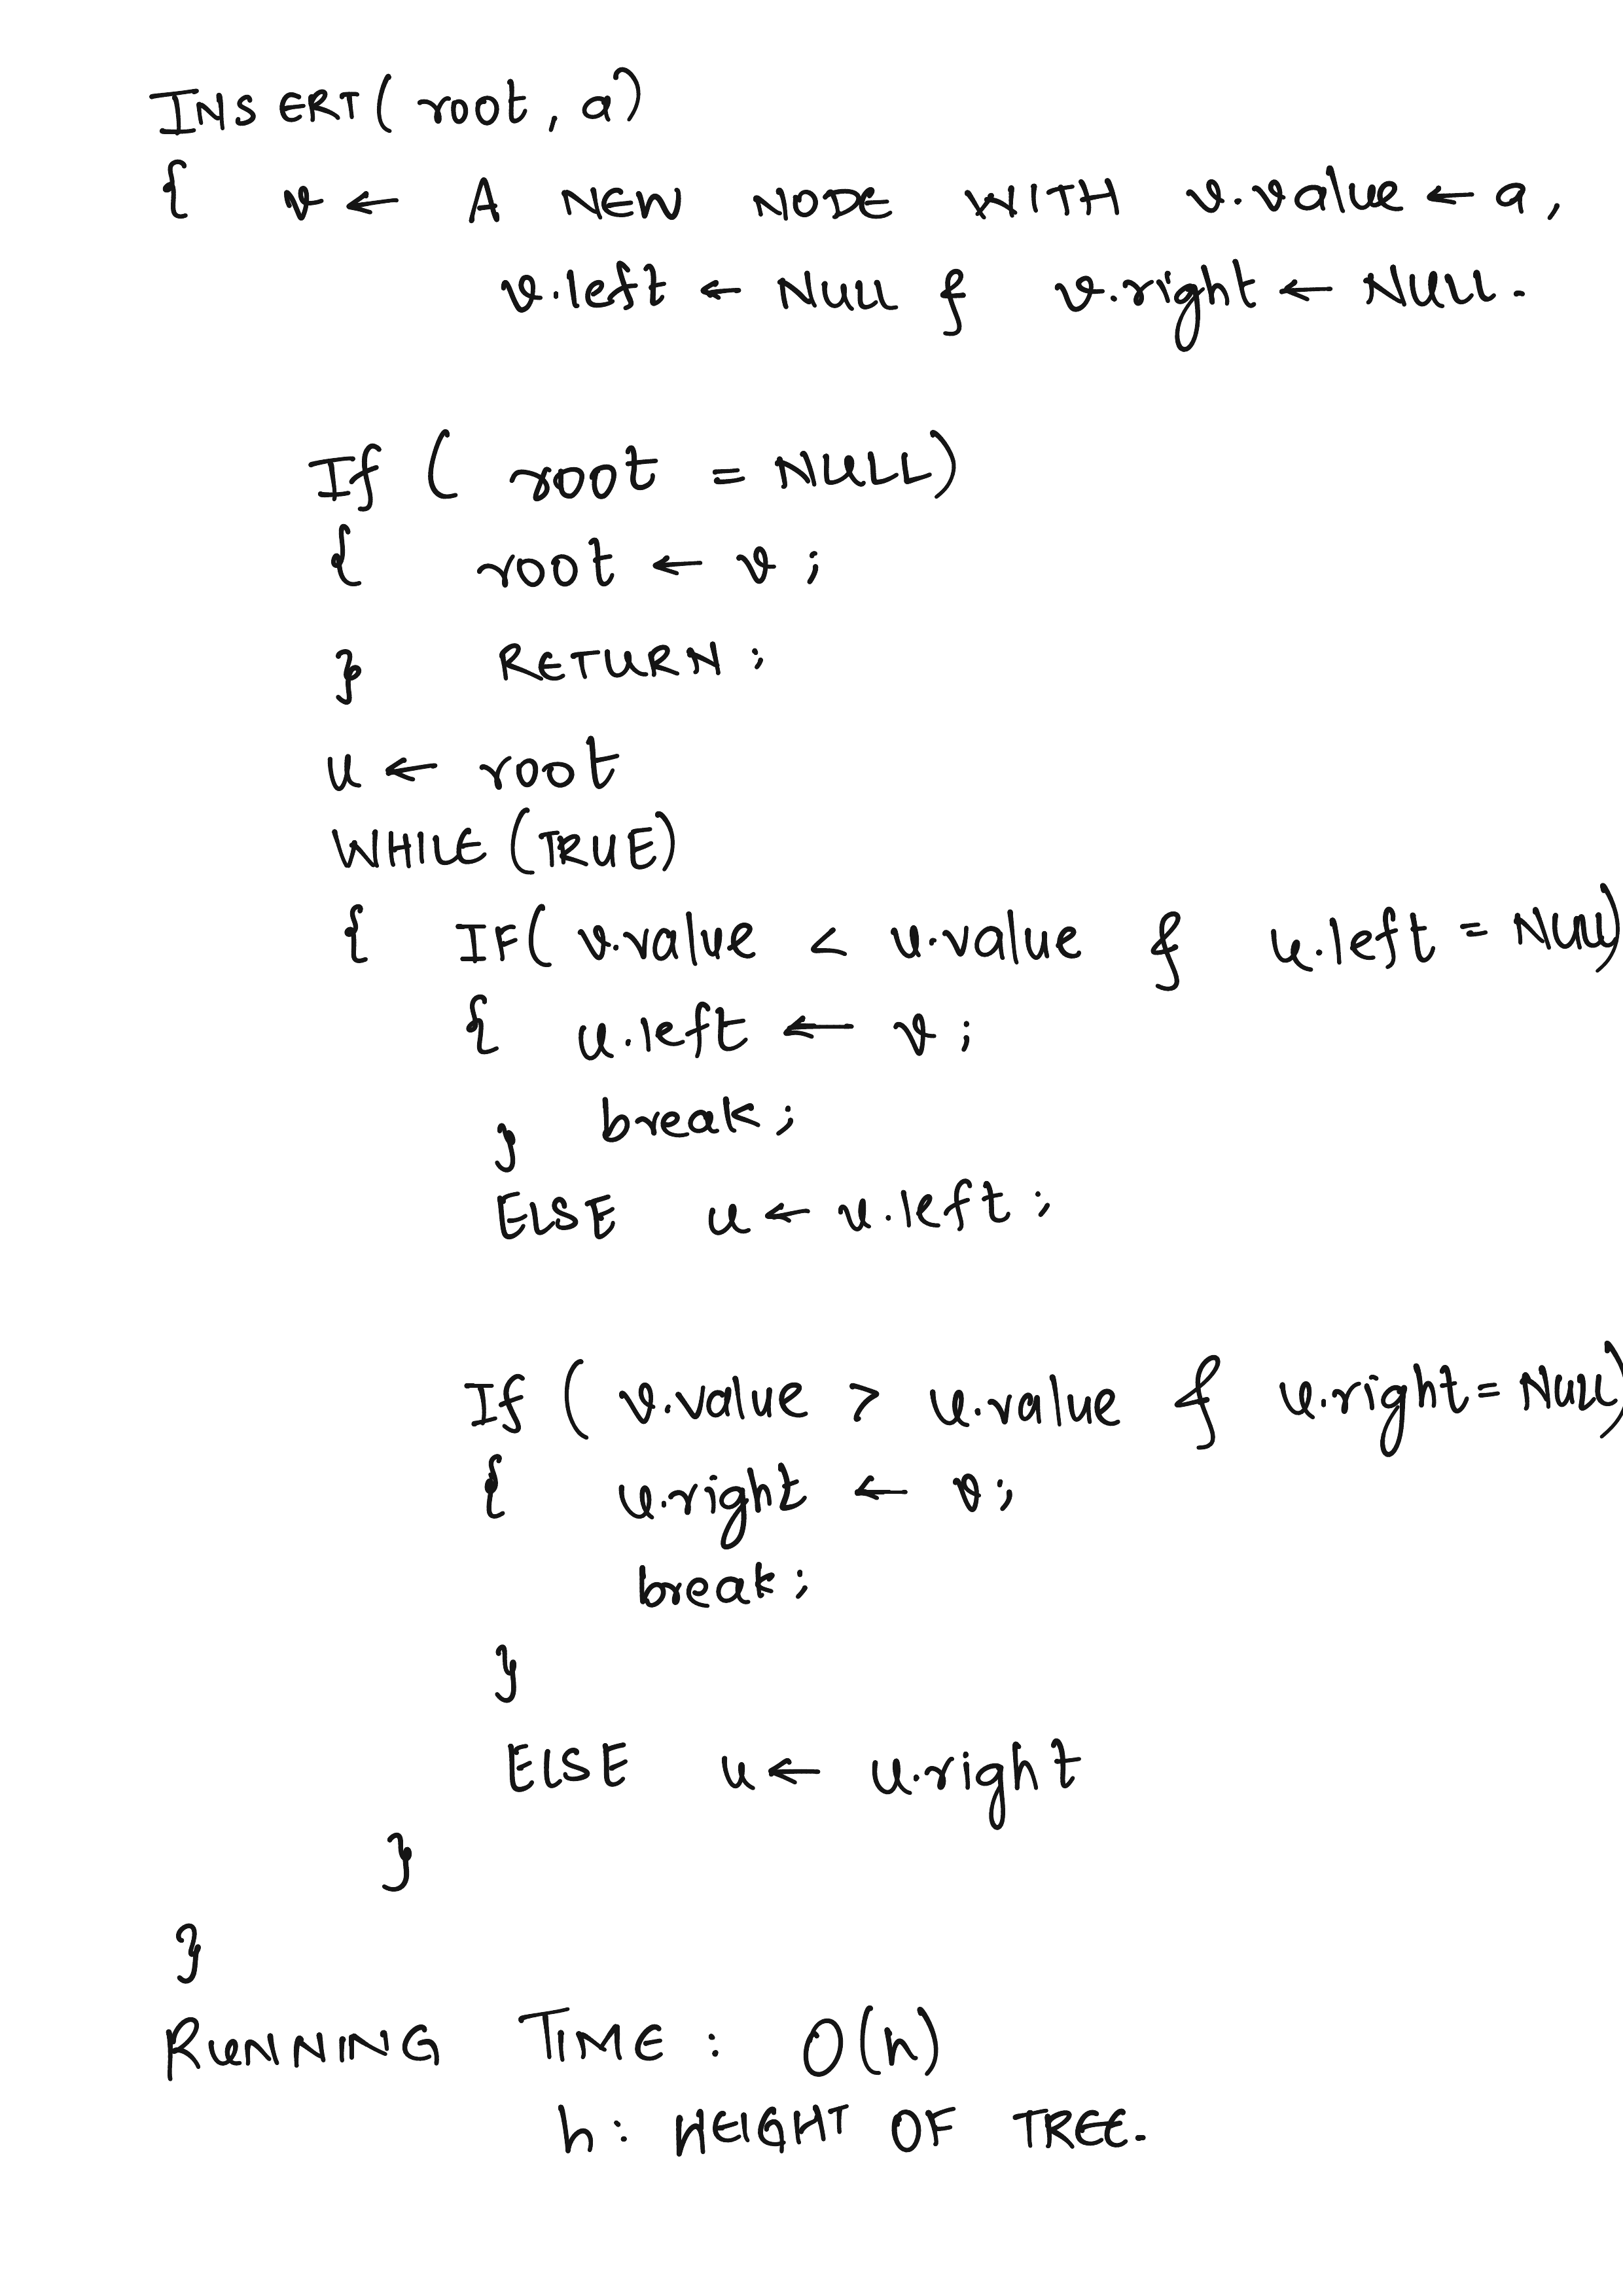 INSERT( root, a)
{ v ← A NEW NODE WITH v.value ← a,
v.left ← NULL & v.right ← NULL.
If ( root = NULL)
{ root ← v ;
} RETURN ;
u ← root
WHILE (TRUE)
{ IF( v.value < u.value & u.left = NULL)
{ u.left ← v ;
} break ;
ELSE u ← u.left ;
If ( v.value > u.value & u.right = NULL)
{ u.right ← v ;
break ;
}
ELSE u ← u.right
}
}
RUNNING TIME : O(h)
h : HEIGHT OF TREE.